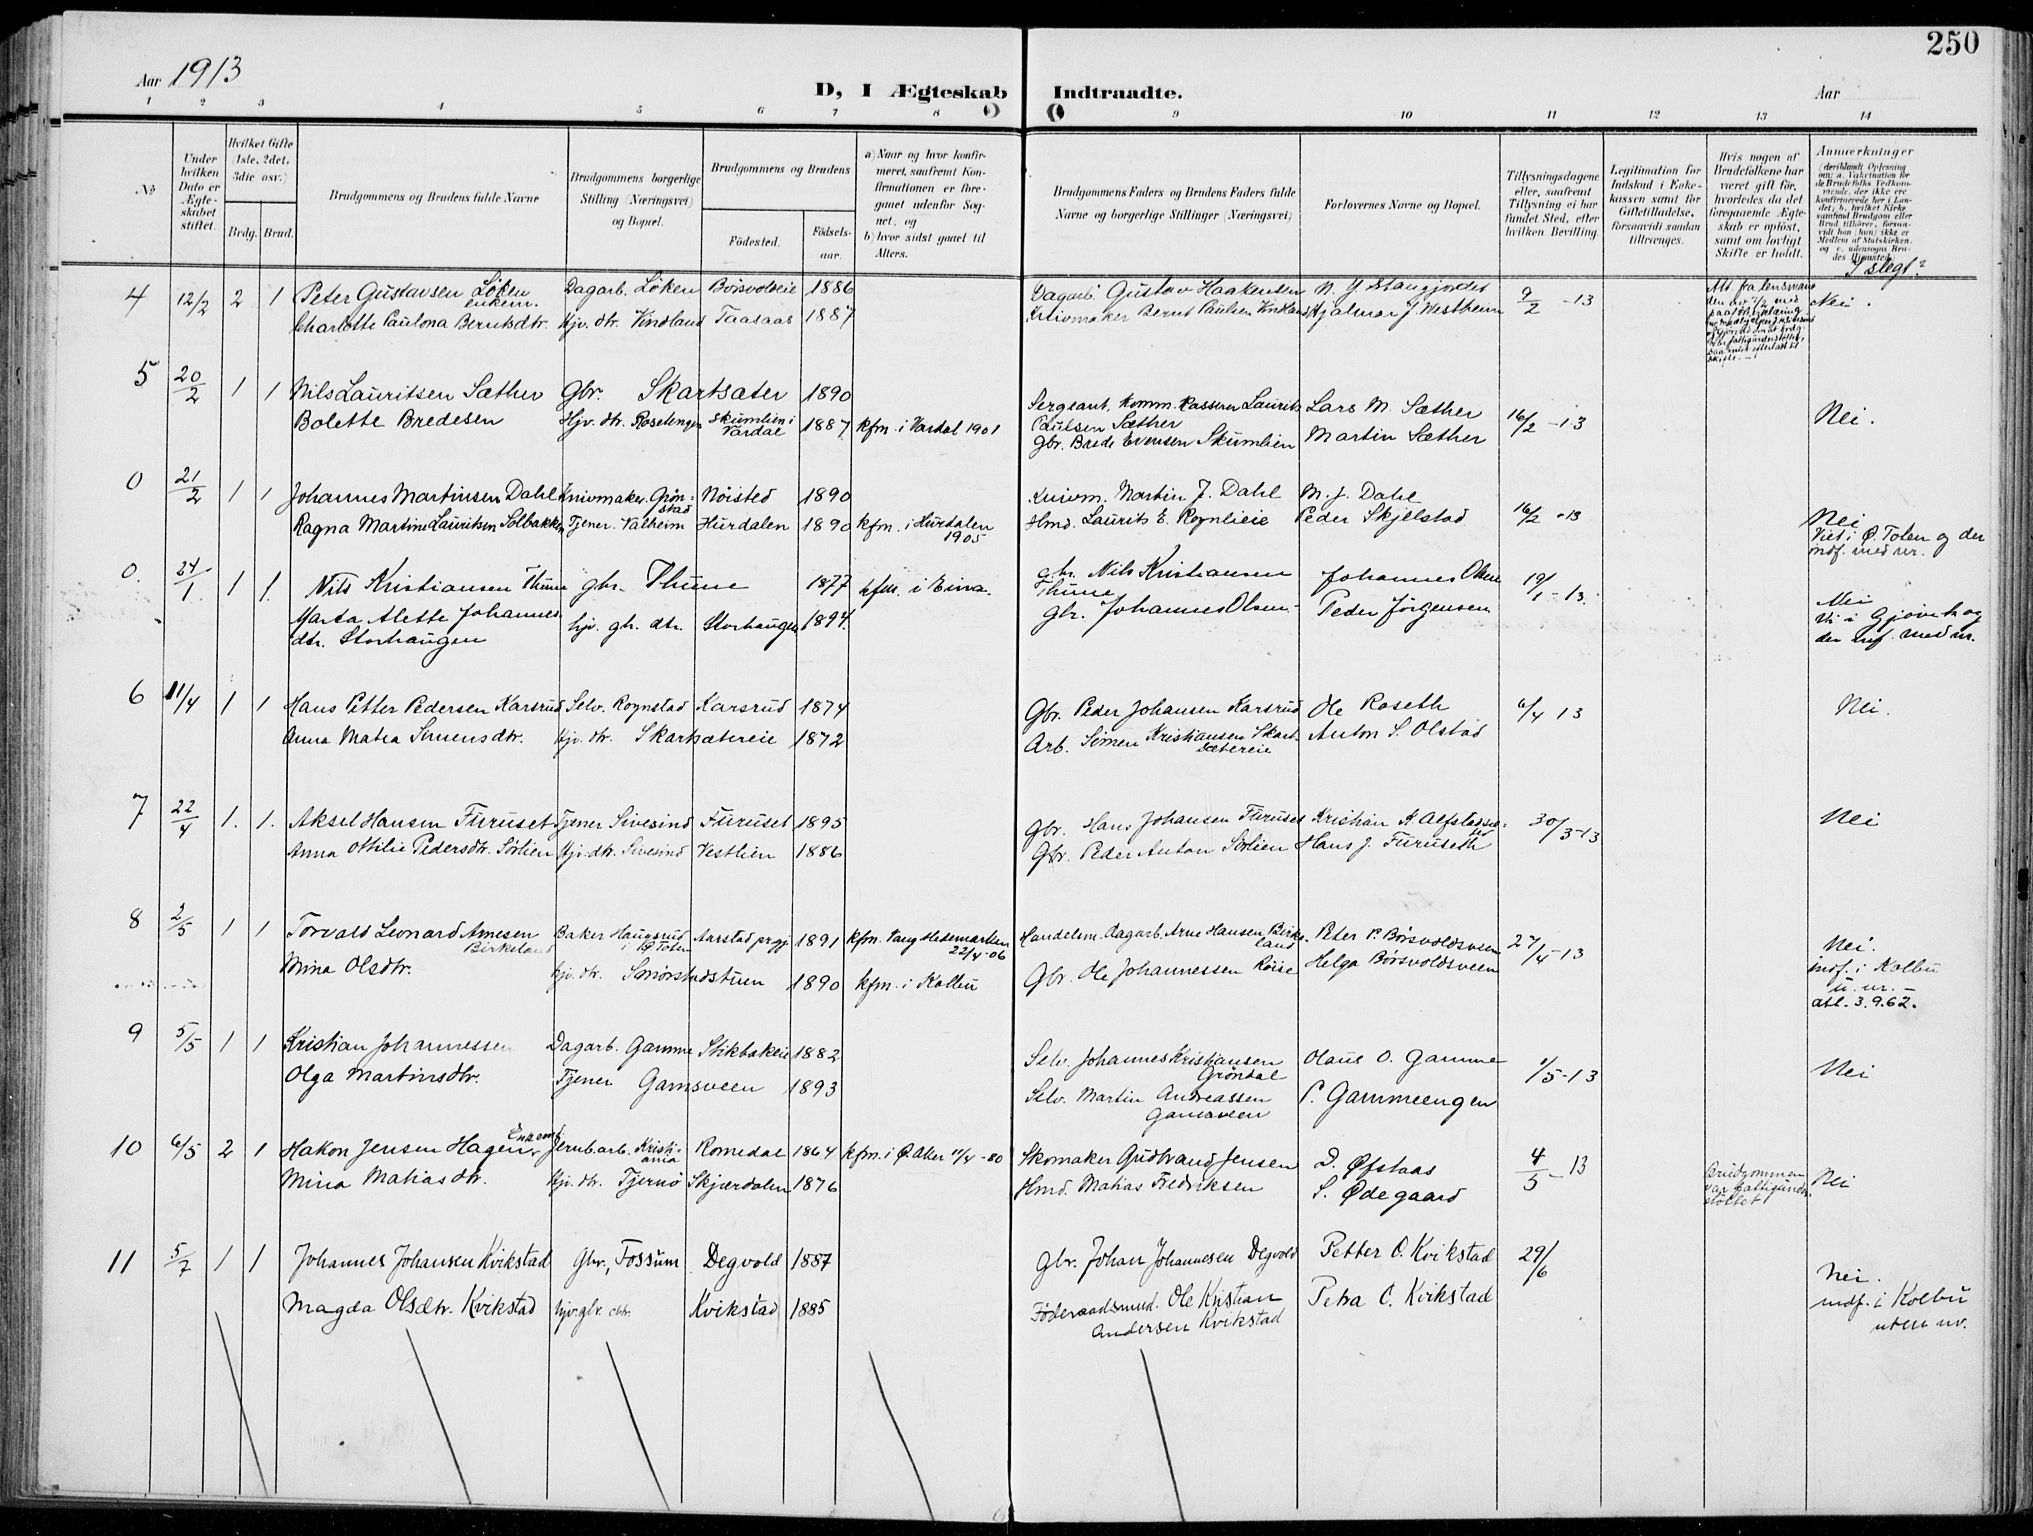 250
Aar 1913
D, I Ægteskab Indtraadte.
Aar
1 2 3 4 5 6 7 8 9 10 11 12 13 14
No
Under hvilken Dato er Ægteskabet stiftet.
Hvilket Gifte (1ste, 2det, 3die osv.)
Brdg. Brud.
Brudgommens og Brudens fulde Navne
Brudgommens borgerlige Stilling (Næringsvei) og Bopæl.
Brudgommens og Brudens
Fødested.
Fødselsaar.
a) Naar og hvor konfirmeret, saafremt Konfirmationen er foregaaet udenfor Sognet, og
b) hvor sidst gaaet til Alters.
Brudgommens Faders og Brudens Faders fulde Navne og borgerlige Stillinger (Næringsvei)
Forlovernes Navne og Bopæl.
Tillysningsdagene eller, saafremt Tillysning ei har fundet Sted, efter hvilken Bevilling.
Legitimation for Indskud i Enkekassen samt for Giftetilladelse, forsaavidt saadan tiltrænges.
Hvis nogen af Brudefolkene har været gift før, hvorledes da det foregaaende Ægteskab er opløst, samt om lovligt Skifte er holdt.
Anmærkninger
I slegt?
4 12/2 2 1 Peter Gustavsen Löken enkem. Dagarb. Löken Börsvoldeie 1886 Dagarb. Gustav Haakensen 9/2 -13 Nei.
Charlotte Paulona Berntsdtr. Hjv. dtr. Vindland Taasaas 1887 Knivmaker Bernt Paulsen Vindland Hjalmar J. Westheim
5 20/2 1 1 Nils Lauritsen Sæther Gbr. Skartsæter 1890 Sergeant, Komm. Kasserer Laurits Paulsen Sæther Lars M. Sæther 16/2 -13 Nei.
Bolette Bredesen Hjv. dtr. Roselengen Skumlien i Vardal 1887 kfm. i Vardal 1901 Gbr. Brede Evensen Skumlien Martin Sæther
0 21/2 1 1 Johannes Martinsen Dahl Knivmaker. Grönstad Nöisted 1890 Knivm. Martin J. Dahl M. J. Dahl 16/2 -13 Nei
Ragna Martine Lauritsen Solbakken Tjener. Valheim Hurdalen 1890 kfm. i Hurdalen 1905 Hmd. Laurits E. Rognlieie Peder Skjelstad
Viet i Ø. Toten og der indf. med nr.
0. 24/1 1 1. Nils Kristiansen Thune gbr. Thune 1877 kfm. i Eina. gbr. Nils Kristiansen Thune Johannes Olsen 19/1 - 13. Nei
Marta Alette Johannesdtr. Storhaugen hjv. gb. dtr. Storhaugen 1894. Gbr. Johannes Olsen Peder Jörgensen
Vi i Gjövik og der inf. med nr.
6 11/4 1 1 Hans Petter Pedersen Karsrud Selv. Rognstad Karsrud 1874 Gbr. Peder Johansen Karsrud Ole Roseth 6/4 13 Nei.
Anna Matea Simensdtr. Hjv. dtr. Skartsætereie 1872 Arb. Simen Kristiansen Skartsætereie Anton S. Olstad
7 22/4 1. 1. Aksel Hansen Furuset Tjener Sivesind Furuset 1895 Gbr. Hans Johansen Furuset 30/3-13 Nei
Anna Ottilie Pedersdtr. Sörlien Hjv. dtr. Sivesind Vestlien 1886 Gbr. Peder Anton Sörlien Hans J. Furuseth
8 2/5 1 1 Torvald Leonard Arnesen Birkeland Baker Haugsrud i Ø. Toten Aarstad prgj. 1891 kfm. Vang Hedemarken 22/4-06 Handelsm. dagarb. Arne Hansen Birkeland Peter P. Börsvoldsveen 27/4-13 Nei.
Mina Olsdtr. hjv. dtr. Smörstadstuen 1890 kfm. i Kolbu Gbr. Ole Johannessen Röise Helga Börsvoldsveen
indf. i Kolbu u. nr. -
att. 3.9.62.
9 5/5 1 1 Kristian Johannessen Dagarb. Gamme Stikbakeie 1882 Selv. Johannes Kristiansen Gröndal Olaus O. Gamme 1/5-13 Nei
Olga Martinsdtr. Tjener Gamsveen 1893 Selv. Martin Andreassen Gamsveen P. Gammeengen
10 6/5 2 1 Hakon Jensen Hagen Enkem. Jernb.arb. Kristiania Romedal 1864 kfm. i Ø. Aker 11/4-80 Skomaker Gudbrand Jensen D. Øfstaas 4/5 - 13 Brudgommen var fattigunderstöttet Nei
Mina Matiasdtr. Hjv. dtr. Tjernö Skjærdalen 1876 Hmd. Matias Fredriksen S. Ødegaard
11 5/7 1 1 Johannes Johansen Kvikstad Gbr., Fossum Degvold 1887 Gbr. Johan Johannesen Degvold Petter O. Kvikstad 29/6 Nei.
Magda Olsdtr. Kvikstad hjv. gbr. dtr. Kvikstad 1885 Föderaadsmnd. Ole Kristian Andersen Kvikstad Petra O. Kvikstad
indf. i Kolbu uten nr.